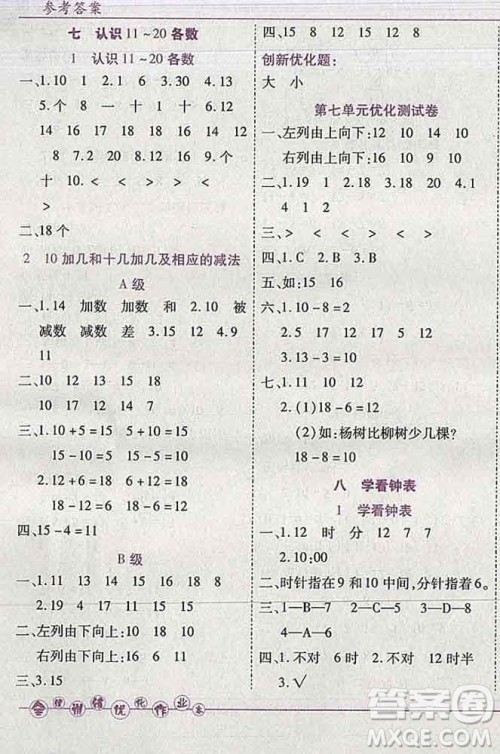 参考答案
七 认识11~20各数
1 认识11~20各数
一、1.10 1 2.1 6 3.10 4.13
5.个 8 一 十 1 十 6.12
14 16 18 17 18 19 20
7.8 7 8.11 9.20 12 16
10.< < > > < >
二、18个
2 10加几和十几加几及相应的减法
A级
一、1.14 加数 加数 和 2.10 被
减数 减数 差 3.15 12 4.9
11
二、10 12 13 15 18
10 17 12 14 18
三、1.10+5=15 5+10=15
2.12+6=18 6+12=18
18-12=6 18-6=12
3.15-5=10 15-10=5
四、15-4=11
B级
一、1.7 12 17 19 18 10
2.19 4 4 11 13 15
二、左列由下向上:10 18 12
右列由下向上:16 16 15
三、3.15
四、15 8 12 12
创新优化题:
大 小
第七单元优化测试卷
一、左列由上向下:12 10 14
右列由上向下:16 10 11
二、1.19 1 2.9 3.18 20 4.12
4 1
三、> > < < < >
四、1.C 2.B 3.A 4.B
五、如:15 16
六、1.10-8=2
2.15 12 17 5 12
3.18-8=10
七、1.11 10 12
2.(1)18-6=12
(2)如:杨树比柳树少几棵?
18-8=10
八 学看钟表
1 学看钟表
一、1.12 时 分 12 7 7
2.10:00
二、时针指在9和10中间,分针指在6。
三、1—B—D 2—D—C 3—C—B
4—A—E
四、1.不对 5时 2.不对 12时半
3.√